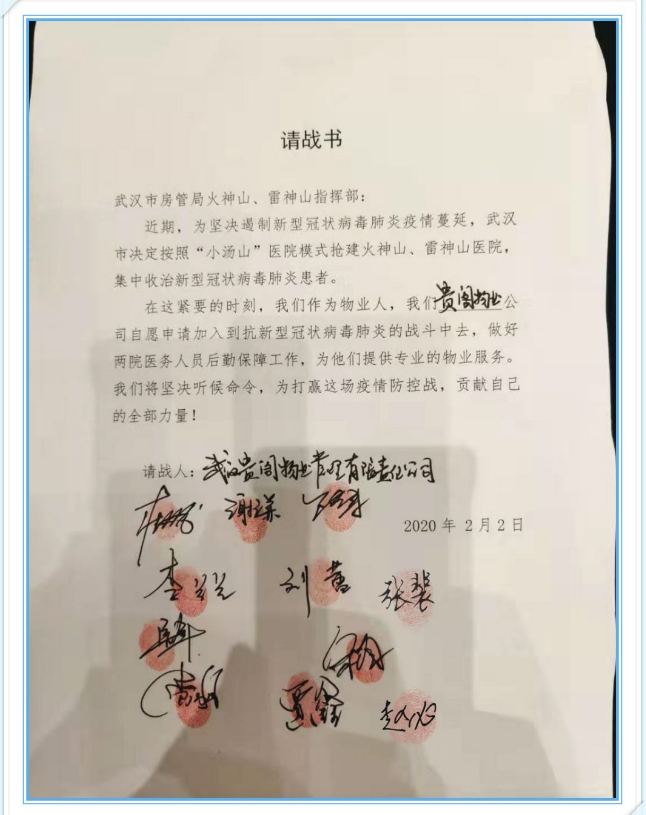 请战书
武汉市房管局火神山、雷神山指挥部：
近期，为坚决遏制新型冠状病毒肺炎疫情蔓延，武汉
市决定按照“小汤山”医院模式抢建火神山、雷神山医院，
集中收治新型冠状病毒肺炎患者。
在这紧要的时刻，我们作为物业人，我们贵阁物业公
司自愿申请加入到抗新型冠状病毒肺炎的战斗中去，做好
两院医务人员后勤保障工作，为他们提供专业的物业服务。
我们将坚决听候命令，为打赢这场疫情防控战，贡献自己
的全部力量！
请战人：武汉贵阁物业管理有限责任公司
2020 年 2 月 2 日
刘蕾 张裴
贾鑫